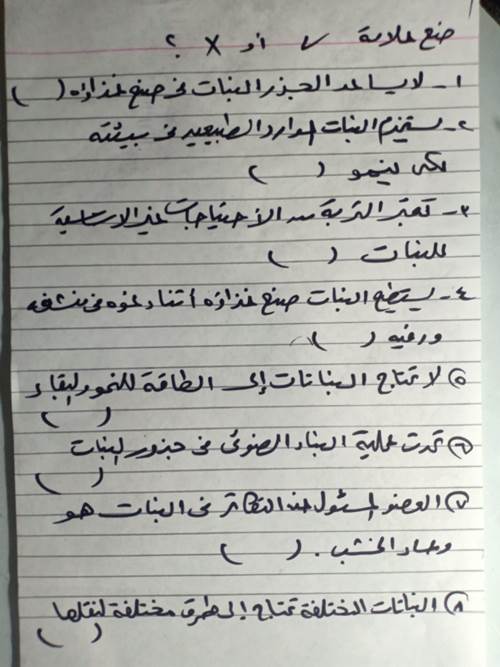 ضع علامة ✓ أو X ؟
١- لا يساعد الجذر النبات فى صنع غذاؤه ( )
٢- يستخدم النبات الموارد الطبيعيه فى بيئته
لكى ينمو ( )
٣- تعتبر التربة من الأحتياجات غير الاساسية
للنبات ( )
٤- يستطيع النبات صنع غذاؤه أثناء نموه فى منشفه
ورقيه ( )
٥ لا تحتاج النباتات إلى الطاقة للنمو والبقاء
( )
٦ تحدث عملية البناء الضوئى فى جذور النبات
( )
٧ العضو المسئول عن التكاثر فى النبات هو
وعاء الخشب . ( )
٨ النباتات المختلفة تحتاج إلى طرق مختلفة لنقلها
( )